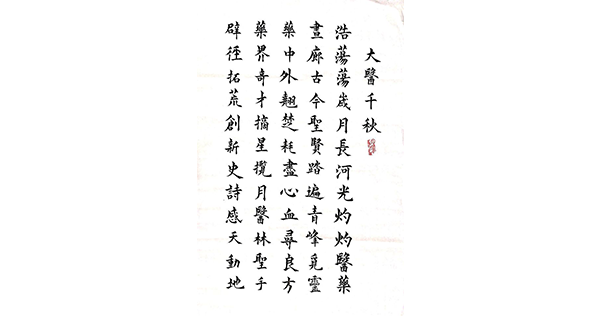 大醫千秋
浩蕩蕩歲月長河光灼灼醫藥
畫廊古今聖賢踏遍青峰覓靈
藥中外翹楚耗盡心血尋良方
藥界奇才摘星攬月醫林聖手
辟徑拓荒創新史詩感天動地